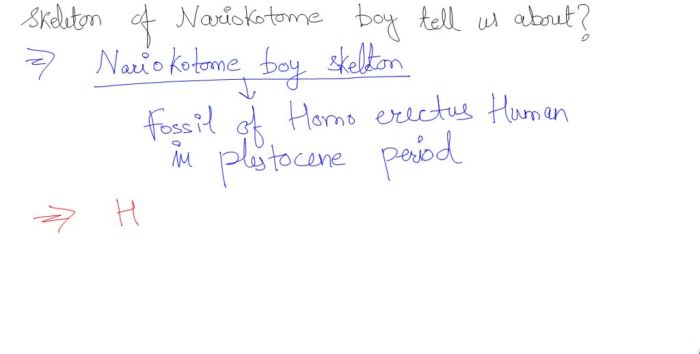 skeleton of Nariokotome boy tell us about?
⇒ Nariokotome boy skelton
↓
Fossil of Homo erectus Human
in plestocene period
⇒ H